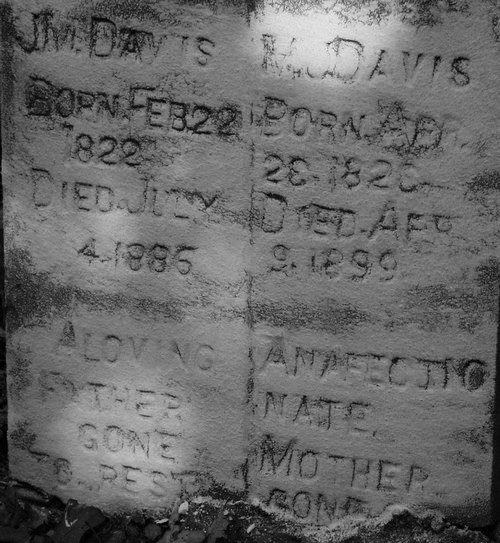 J.M. DAVIS
BORN. FEB. 22
1822
DIED. JULY
4. 1886
A LOVING
FATHER
GONE
TO. REST
DAVIS
BORN. APR.
28. 182
DIED. APR
9. 1899
AN AFFECTIO
NATE.
MOTHER
GONE